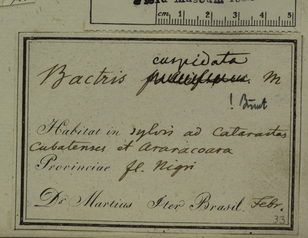 cm 1 2 3 4 5
cuspidata
Bactris M
! Burret
Habitat in sylvis ad Cataractas
Cubatenses et Araracoara
Provinciae fl. Nigri
Dr. Martius Iter Brasil. Febr.
33